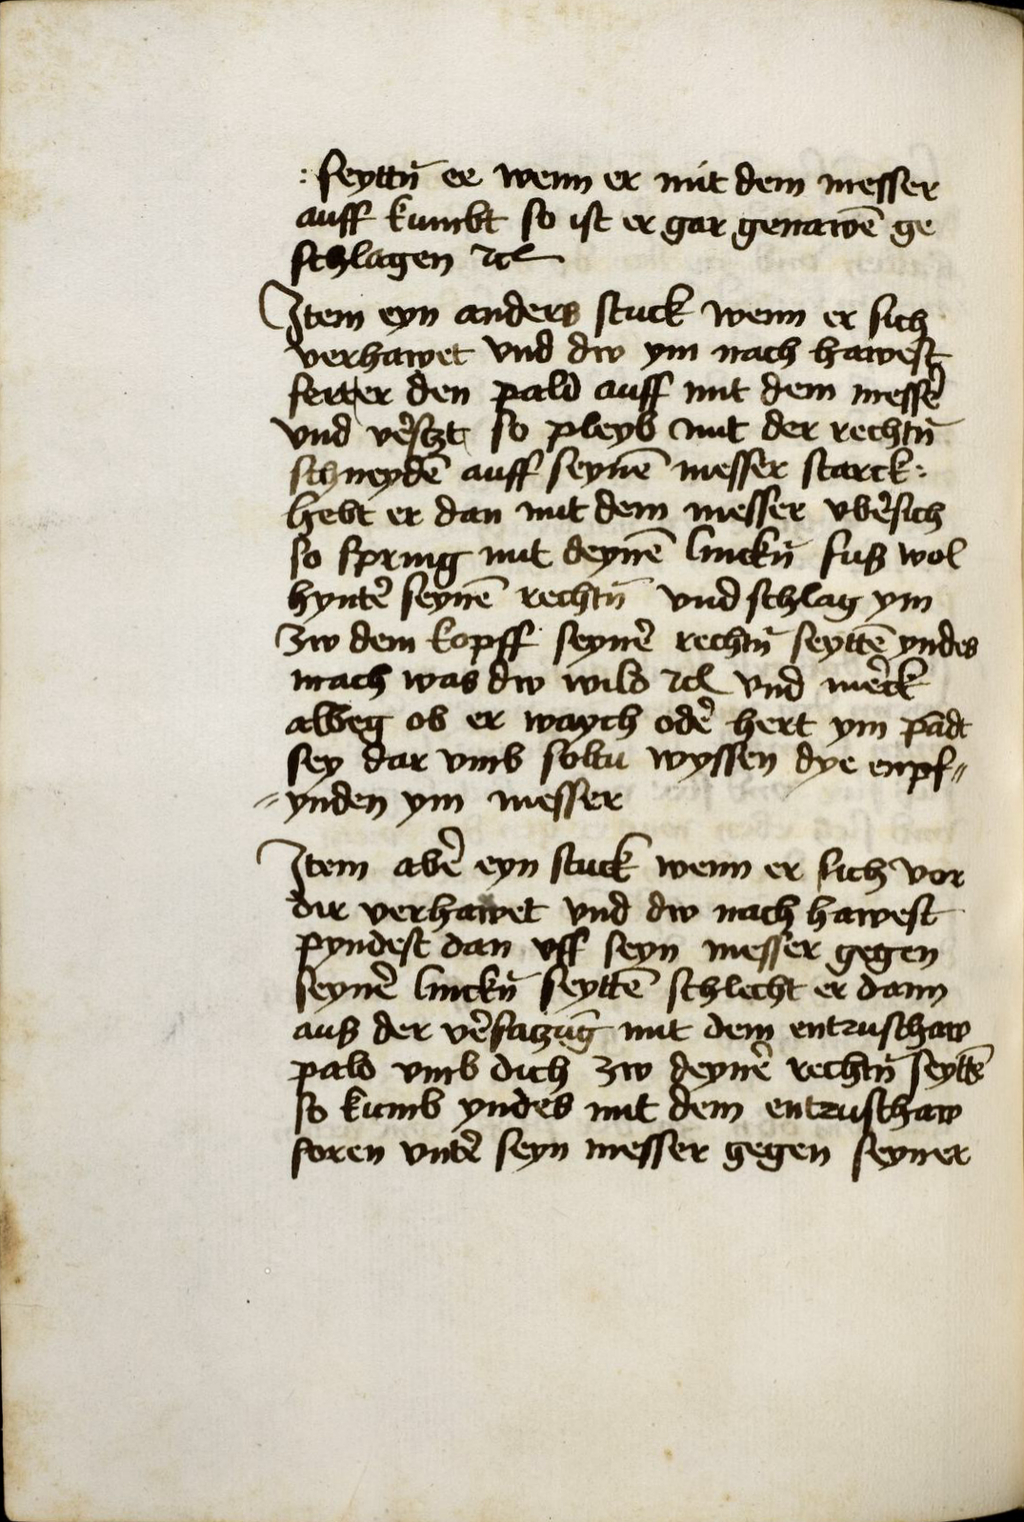 : seyttñ ee wenn er mit dem messer
auff kumbt so ist er gar genawē ge
schlagen ⁊cͣ
Item eyn anders stuck wenn er sich
verhawet vnd dw ym nach hawest
fert er den pald auff mit dem messē
vnd vēsetzt so pleyb mit der rechtñ
schneydē auff seynē messer starck :
hebt er dan mit dem messer vbēsich
so spring mit deynē linckñ fuß wol
hyntē seynē rechtñ vnd schlag ym
zw dem kopff seynē rechtñ seyttē yndes
mach was dw wild ⁊cͣ vnd mēck
albeg ob er waych odē hert ym pādt
sey dar vmb soltu wyssen dye enpf〃
〃ynden ym messer
Item abē eyn stuck wenn er sich vor
dir verhawet vnd dw nach hawest
pyndest dan vff seyn messer gegen
seynē linckñ seyttē schlecht er dann
auß der vēsatzūg mit dem entruschaw
pald vmb dich zw deynē rechtñ seyttē
so kumb yndes mit dem entruschaw
foren vntē seyn messer gegen seyner